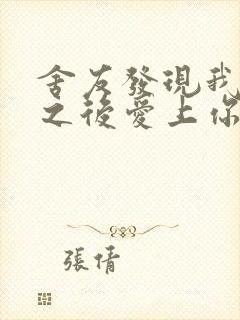 舍友發現我
之後愛上你
張倩